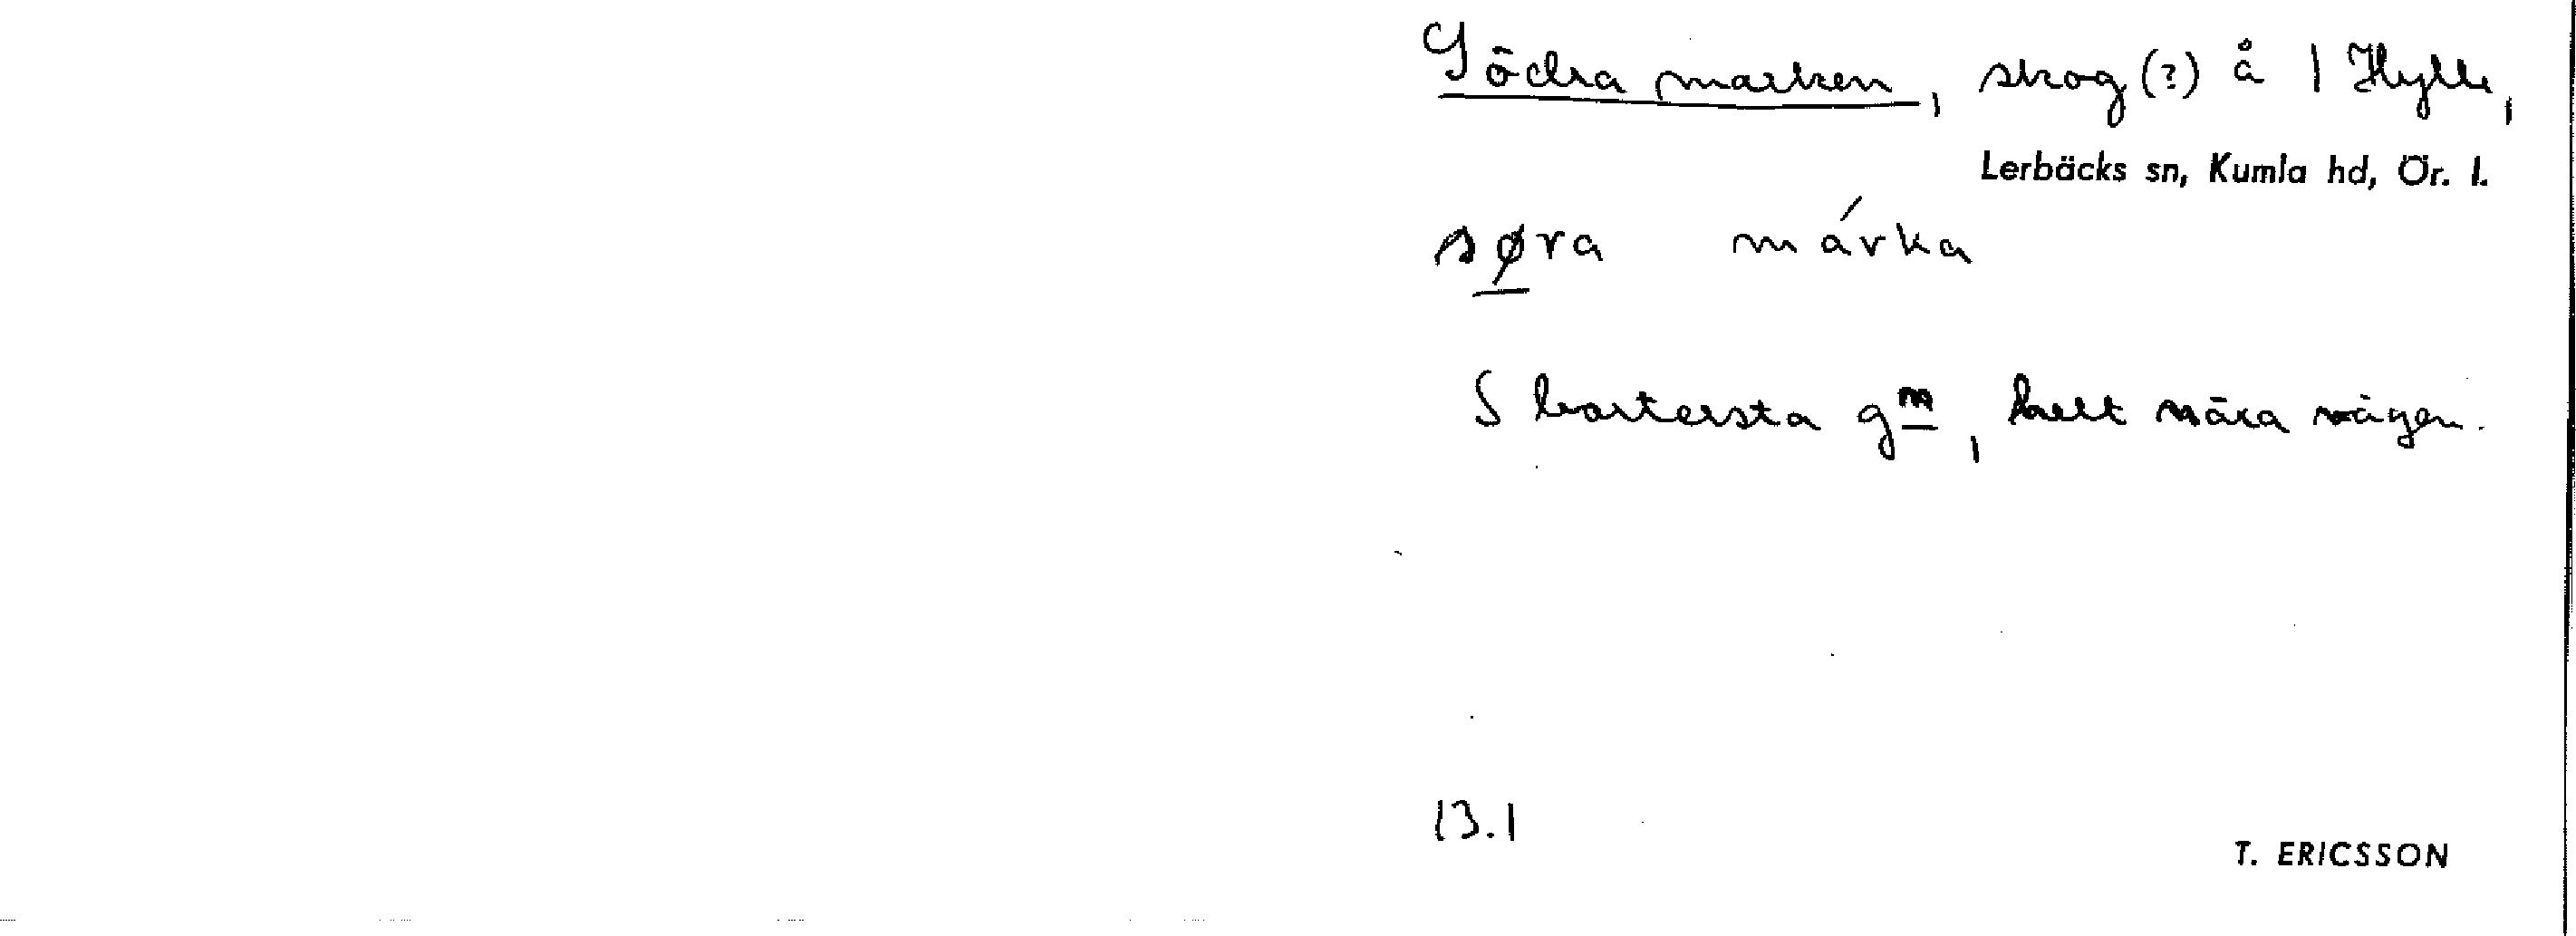 Södra marken, skog (?) å 1 Hylle,
Lerbäcks sn, Kumla hd, Ör. l.
søra márka
S bortersta gm, helt nära vägen.
13.1
T. ERICSSON